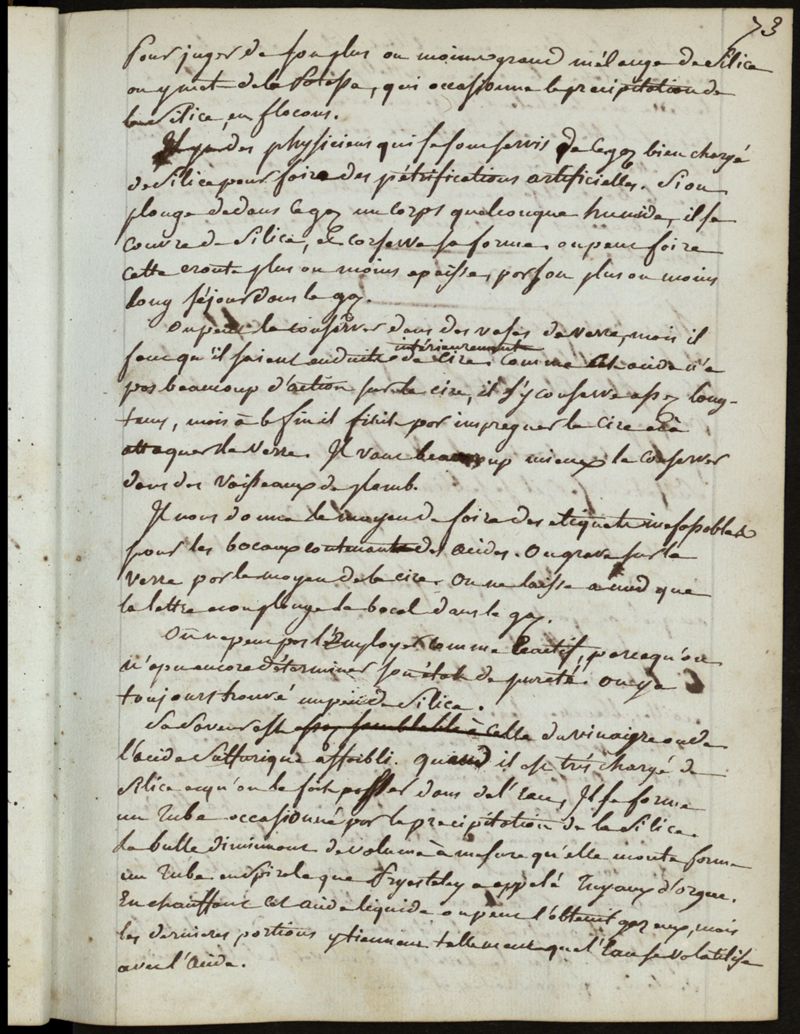 73
Pour juger de son plus ou moins grand mélange de Silice
on y met de la Potasse, qui occasionne la precipitation de
la Silice, en flocons.
Il y a des physiciens qui se sont servis de ce gaz bien chargé
de Silice pour faire des pétrifications artificielles. Si on
plonge dedans ce gaz un corps quelconque humide, il se
couvre de Silice, et conserve sa forme. on peut faire
cette croute plus ou moins epaisse, par son plus ou moins
long séjour dans le gaz.
On peut le conserver dans des vases de verre, mais il
faut qu'il soient enduits intérieurement de cire. Comme cet acide n'a
pas beaucoup d'action sur la cire, il s'y conserve assez long-
tems, mais à la fin il finit par impregner la cire et à
attaquer le verre. Il vaut beaucoup mieux le conserver
dans des vaisseaux de plomb.
Il nous donne le moyen de faire des etiquets inefasables
pour les bocaux contenants des acides. On grave sur le
verre par le moyen de la cire. On ne laisse a nud que
la lettre et on plonge le bocal dans le gaz.
On ne peut pas l'Employer comme reactif, parcequ'on
n'a pu encore déterminer son état de pureté. On y a
toujours trouvé un peu de Silice.
Sa Saveur est assez semblable à celle du vinaigre ou de
l'acide Sulfurique affoibli. quand il est très chargé de
Silice et qu'on le fait passer dans de l'Eau, Il se forme
un Tube occasionné par la precipitation de la Silice.
La bulle diminuant de volume à mesure qu'elle monte forme
un Tube en Spirale que Pryestley a appelé Tuyaux d'orgue.
En chauffant cet acide liquide on peut l'obtenir gazeux, mais
les dernieres portions y tiennent tellement que l'Eau se volatilise
avec l'Acide.